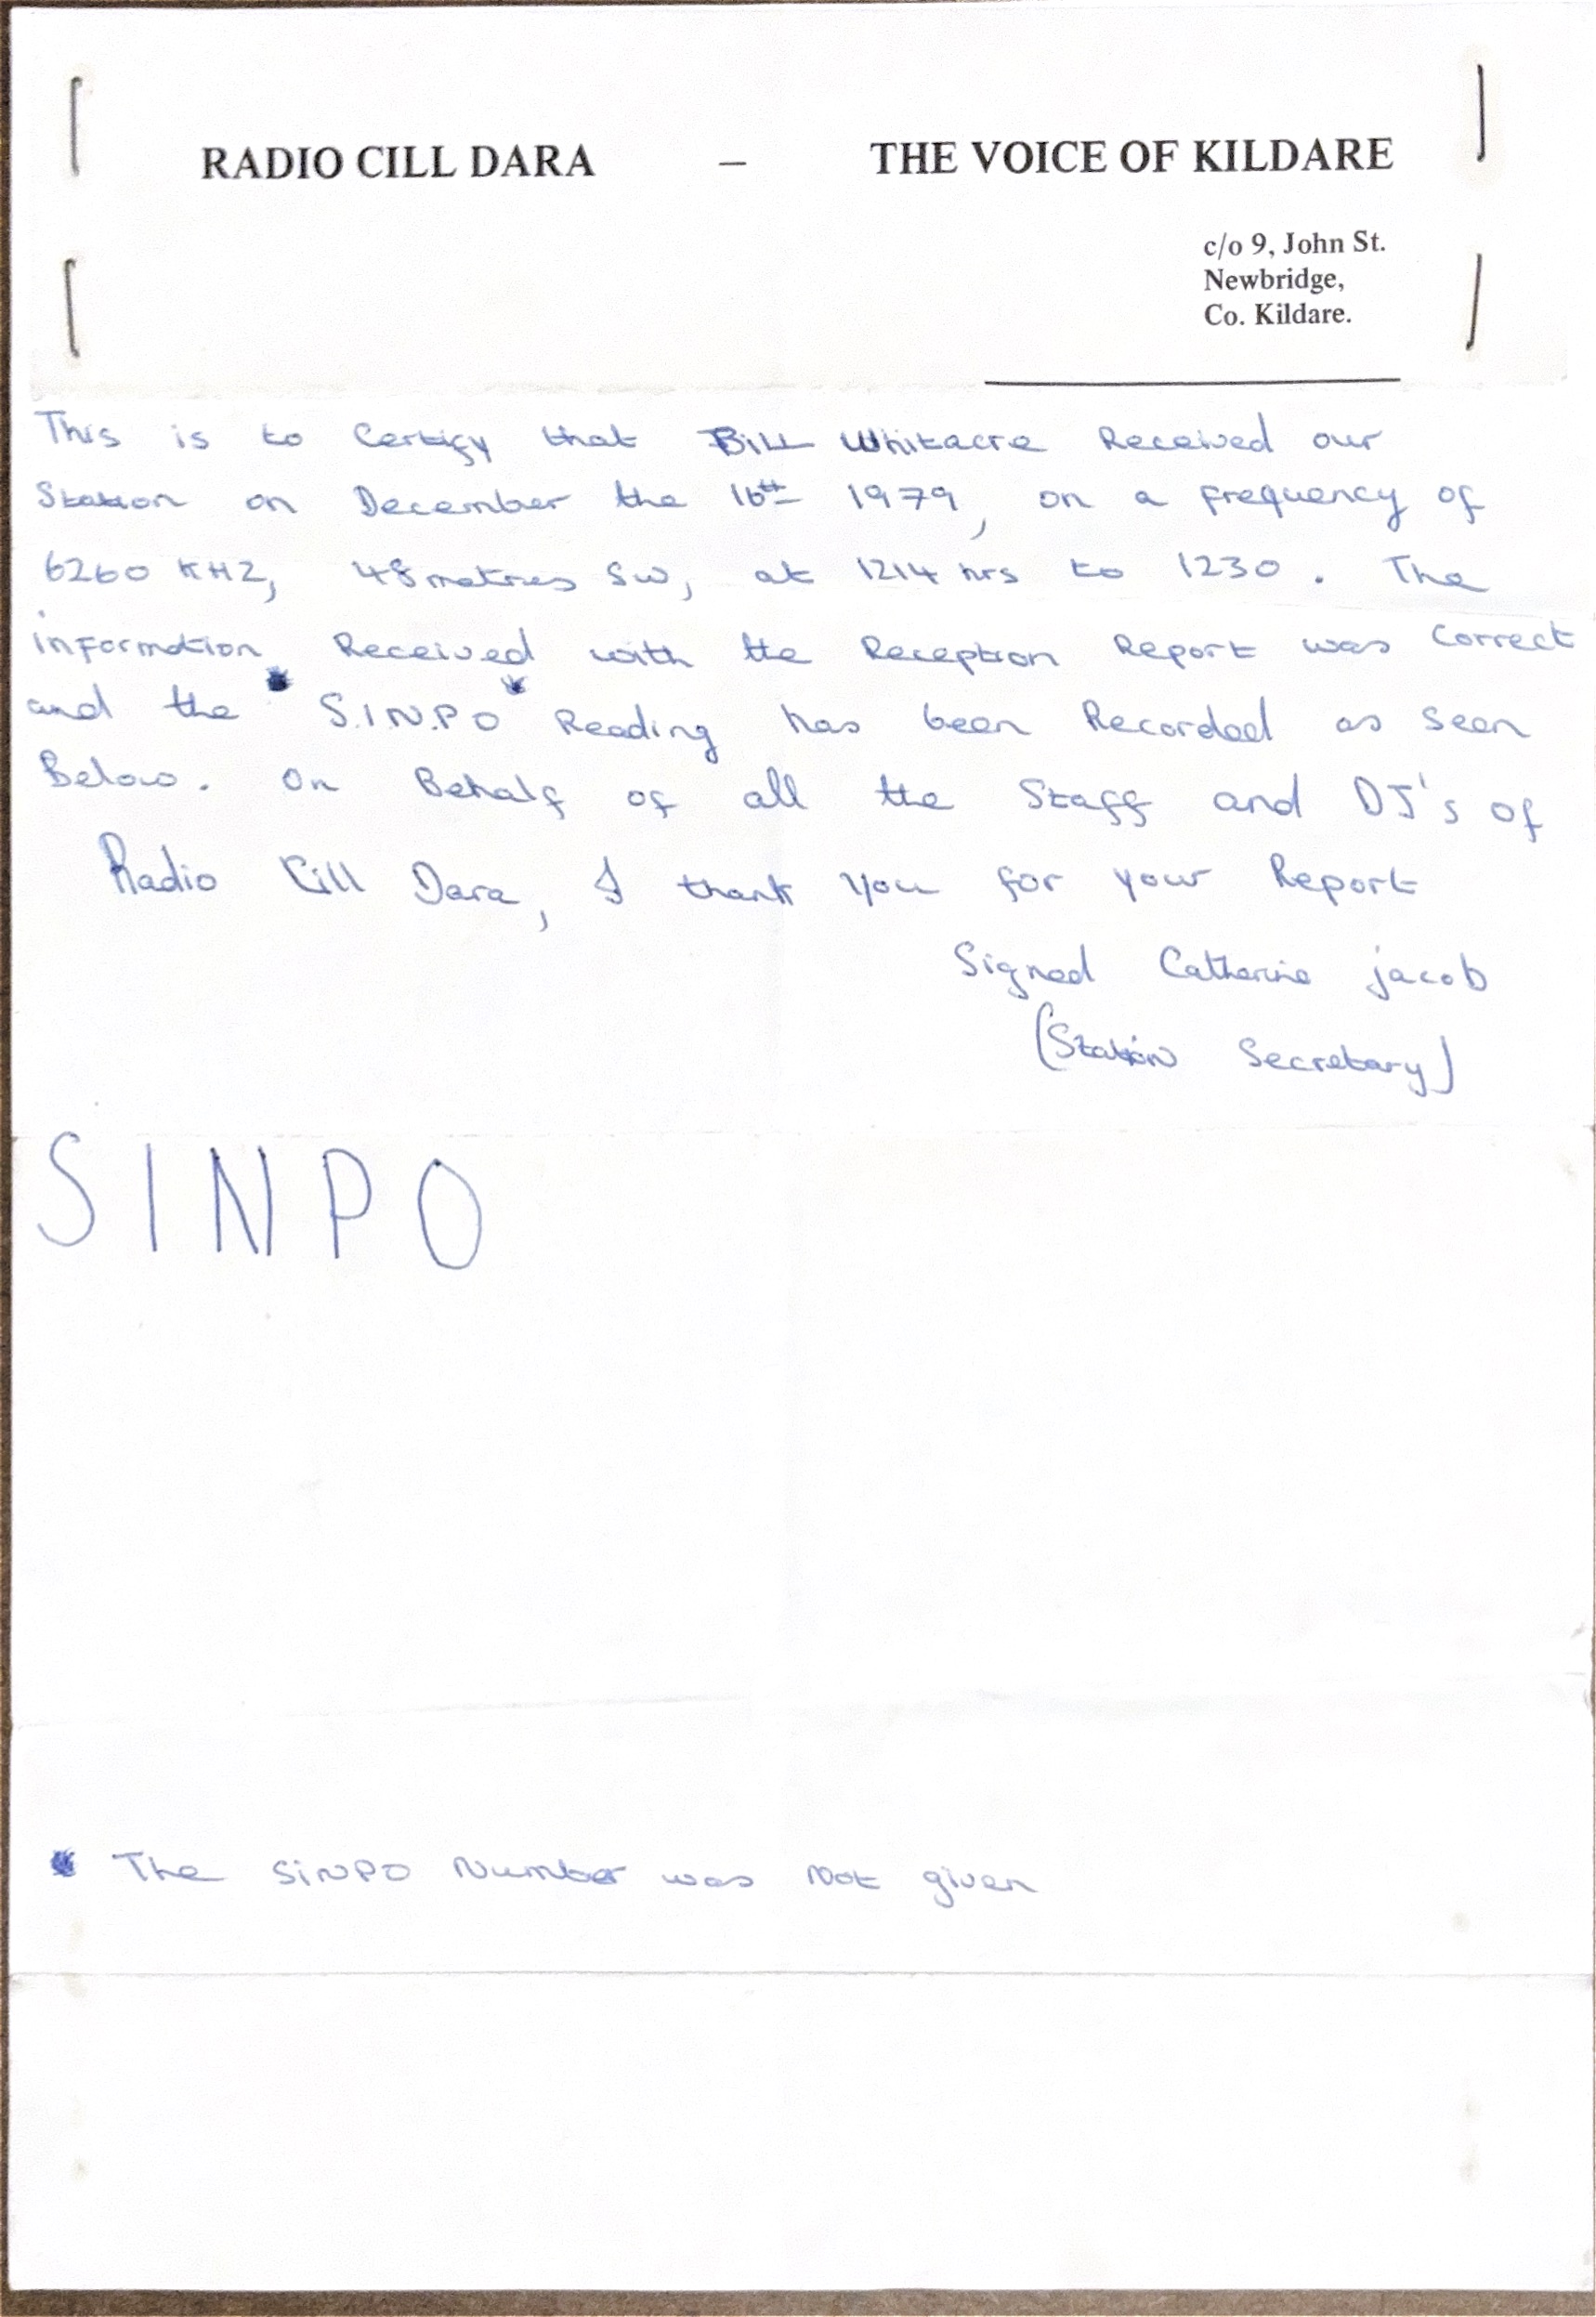 RADIO CILL DARA – THE VOICE OF KILDARE
c/o 9, John St.
Newbridge,
Co. Kildare.
This is to Certify that Bill Whitacre Received our
Station on December the 16th 1979, on a frequency of
6260 KHZ, 48 metres SW, at 1214 hrs to 1230. The
information Received with the Reception Report was Correct
and the * S.I.N.P.O * Reading has been Recorded as seen
Below. On Behalf of all the Staff and DJ's of
Radio Cill Dara, I thank you for your Report
Signed Catherine jacob
(Station Secretary)
SINPO
* The SINPO Number was Not given